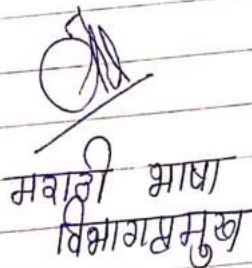 मराठी भाषा
विभागप्रमुख